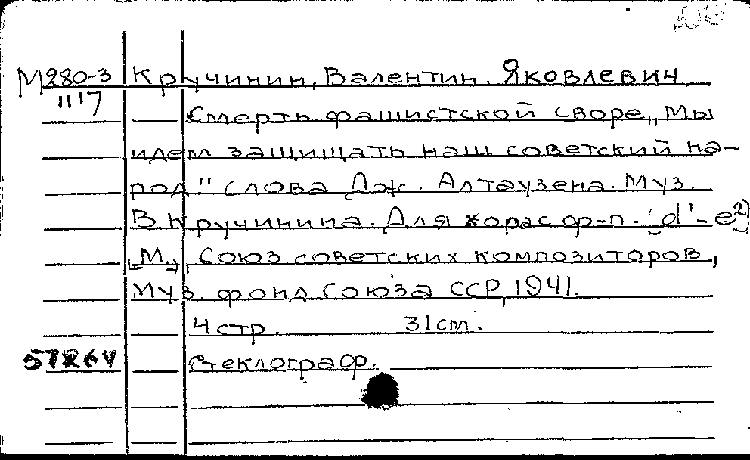 М280-3 Кручинин, Валентин Яковлевич
1117
Смерть фашистской своре „Мы
идем защищать наш советский на-
род." Слова Дж. Алтаузена. Муз.
В Кручинина. Для хора с ф-п. [d'-e²]
[М.], Союз советских композиторов,
Муз. фонд Союза ССР, 1941.
4 стр. 31 см.
Стеклограф.